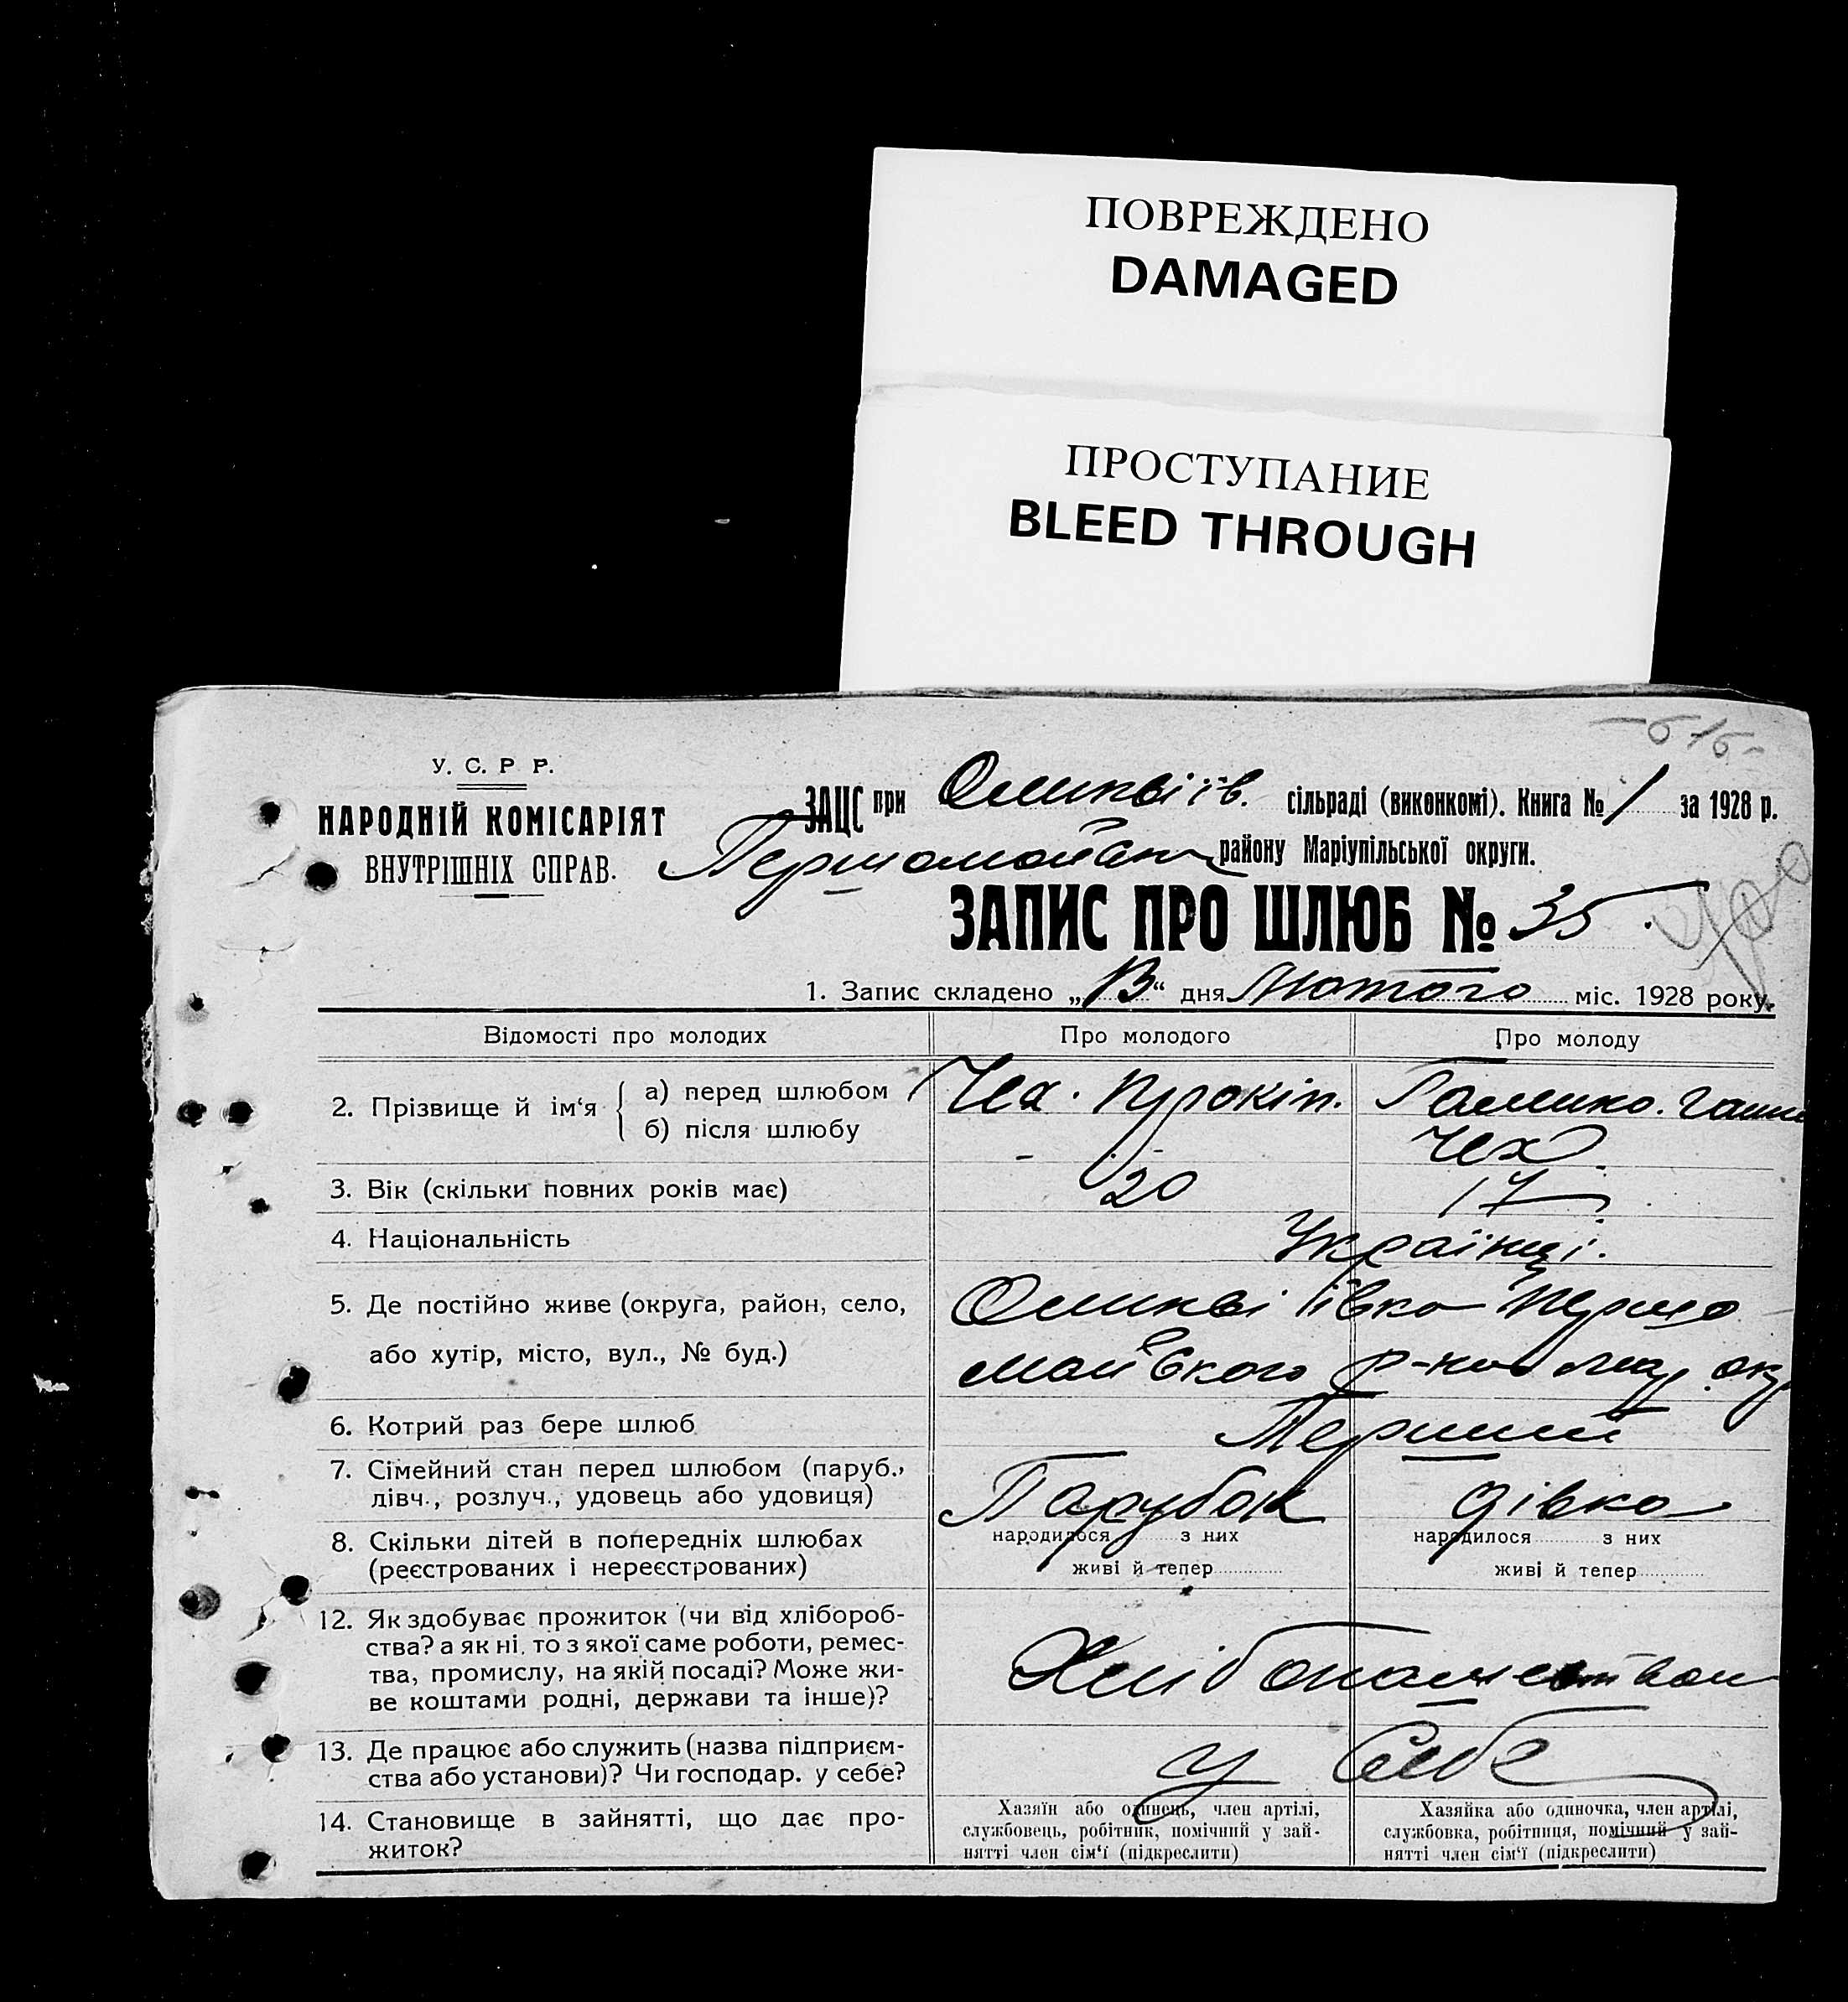 ПОВРЕЖДЕНО
DAMAGED
ПРОСТУПАНИЕ
BLEED THROUGH
У. С. Р. Р.
НАРОДНІЙ КОМІСАРІЯТ
ВНУТРІШНІХ СПРАВ.
ЗАЦС при сільраді (виконкомі). Книга № 1 за 1928 р.
Першомайськ району Маріупільської округи.
ЗАПИС ПРО ШЛЮБ № 35.
1. Запис складено „13“ дня Лютого міс. 1928 року.
Відомості про молодих Про молодого Про молоду
2. Прізвище й ім‘я { а) перед шлюбом Чех. Прокіп.
б) після шлюбу - Чех.
3. Вік (скільки повних років має) 20 17
4. Національність Українці.
5. Де постійно живе (округа, район, село, Першо
або хутір, місто, вул., № буд.) майського р-ну Мар. окр
6. Котрий раз бере шлюб Перший
7. Сімейний стан перед шлюбом (паруб., Парубок дівка
дівч., розлуч., удовець або удовиця)
8. Скільки дітей в попередніх шлюбах народилося з них народилося з них
(реєстрованих і нереєстрованих) живі й тепер живі й тепер
12. Як здобуває прожиток (чи від хлібороб-
ства? а як ні, то з якої саме роботи, ремес-
тва, промислу, на якій посаді? Може жи-
ве коштами родні, держави та інше)?
13. Де працює або служить (назва підприєм- у себе
ства або установи)? Чи господар. у себе?
14. Становище в зайнятті, що дає про- Хазяїн або одинець, член артілі, Хазяйка або одиночка, член артілі,
житок? службовець, робітник, помічний у зай- службовка, робітниця, помічний у зай-
нятті член сім‘ї (підкреслити) нятті член сім‘ї (підкреслити)